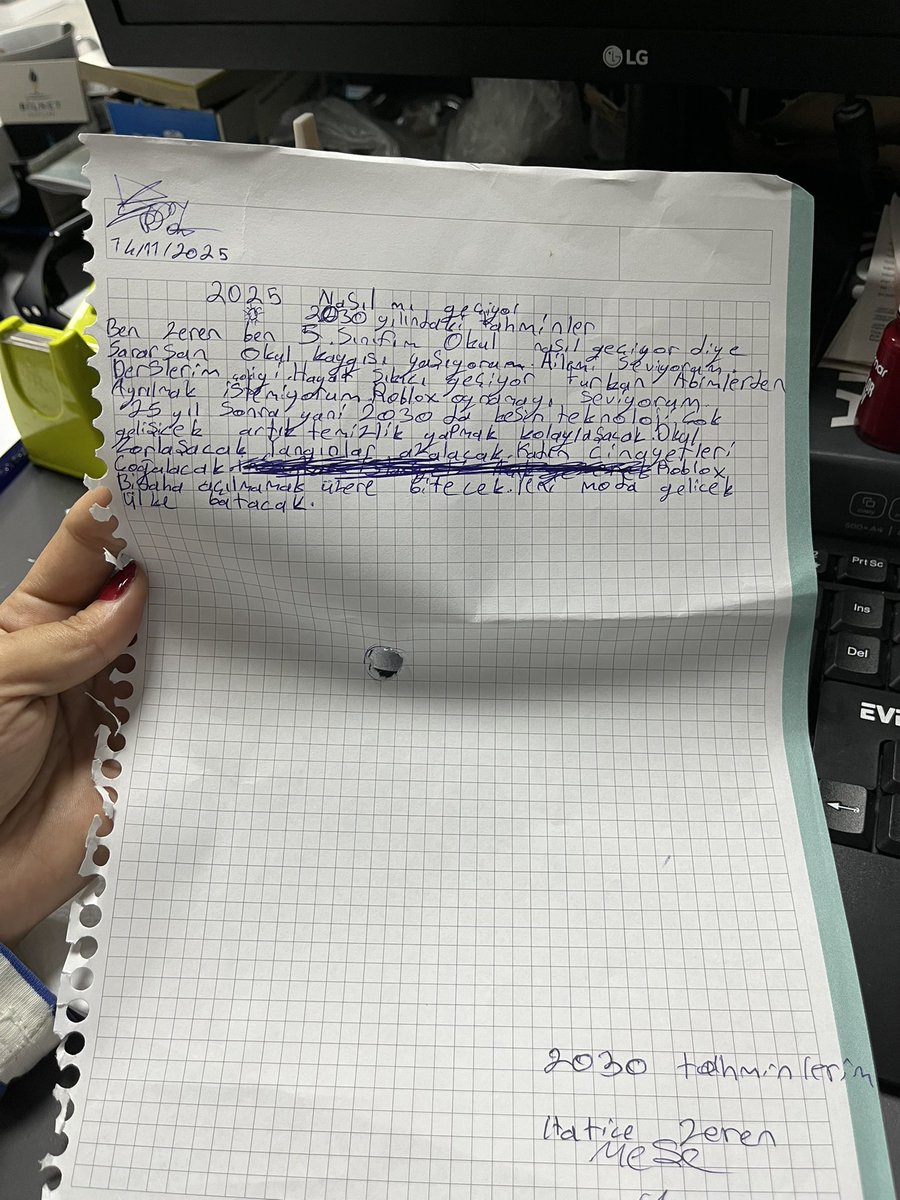 LG
14/11/2025
2025 Nasıl mı geçiyor
2030 yılındaki tahminler
Ben Zeren ben 5. Sınıfım Okul nasıl geçiyor diye
Sorarsan Okul kaygısı yaşıyorum. Ailemi Seviyorum.
Derslerim iyi. Hayat Sıkıcı geçiyor Furkan Abimlerden
Ayrılmak istemiyorum. Roblox oynamayı Seviyorum.
25 yıl Sonra yani 2030 da besin teknoloji çok
gelişicek artık temizlik yapmak kolaylaşacak. Okul
Zorlaşacak Yangınlar azalacak. Kadın Cinayetleri
Çoğalacak Roblox
Bidaha açılmamak üzere bitecek. Yeni moda gelicek
Ülke batacak.
2030 tahminlerim
Hatice Zeren
MeSe
Prt Sc
Ins
Del